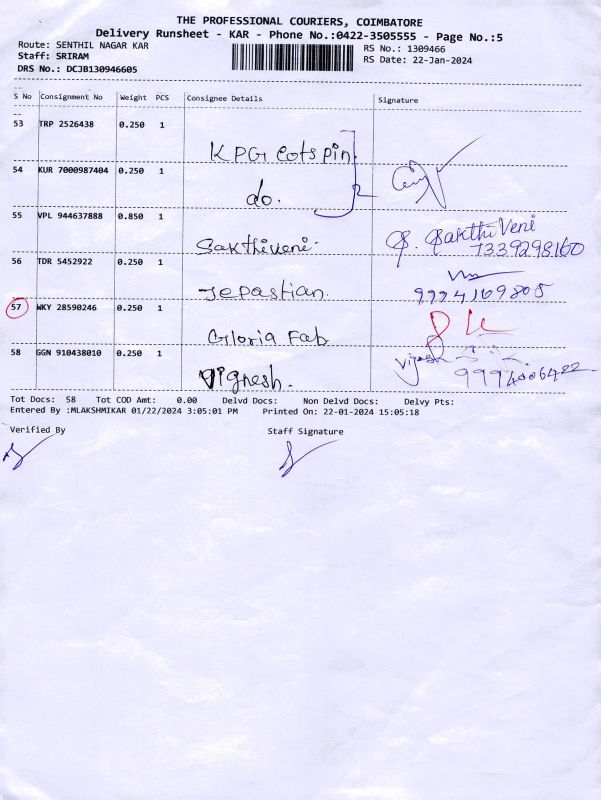 THE PROFESSIONAL COURIERS, COIMBATORE
Delivery Runsheet - KAR - Phone No.:0422-3505555 - Page No.:5
Route: SENTHIL NAGAR KAR
RS No.: 1309466
Staff: SRIRAM
RS Date: 22-Jan-2024
DRS No.: DCJB130946605
S No Consignment No Weight PCS Consignee Details Signature
53 TRP 2526438 0.250 1
KPG cotspin
54 KUR 7000987404 0.250 1
do.
55 VPL 944637888 0.850 1
Sakthiveni. S. Sakthi Veni
7339298160
56 TDR 5452922 0.250 1
Jepastian 9994169805
57 WKY 28590246 0.250 1
Gloria Fab
58 GGN 910438010 0.250 1
Vignesh.
Tot Docs: 58 Tot COD Amt: 0.00 Delvd Docs: Non Delvd Docs: Delvy Pts:
Entered By :MLAKSHMIKAR 01/22/2024 3:05:01 PM Printed On: 22-01-2024 15:05:18
Verified By Staff Signature